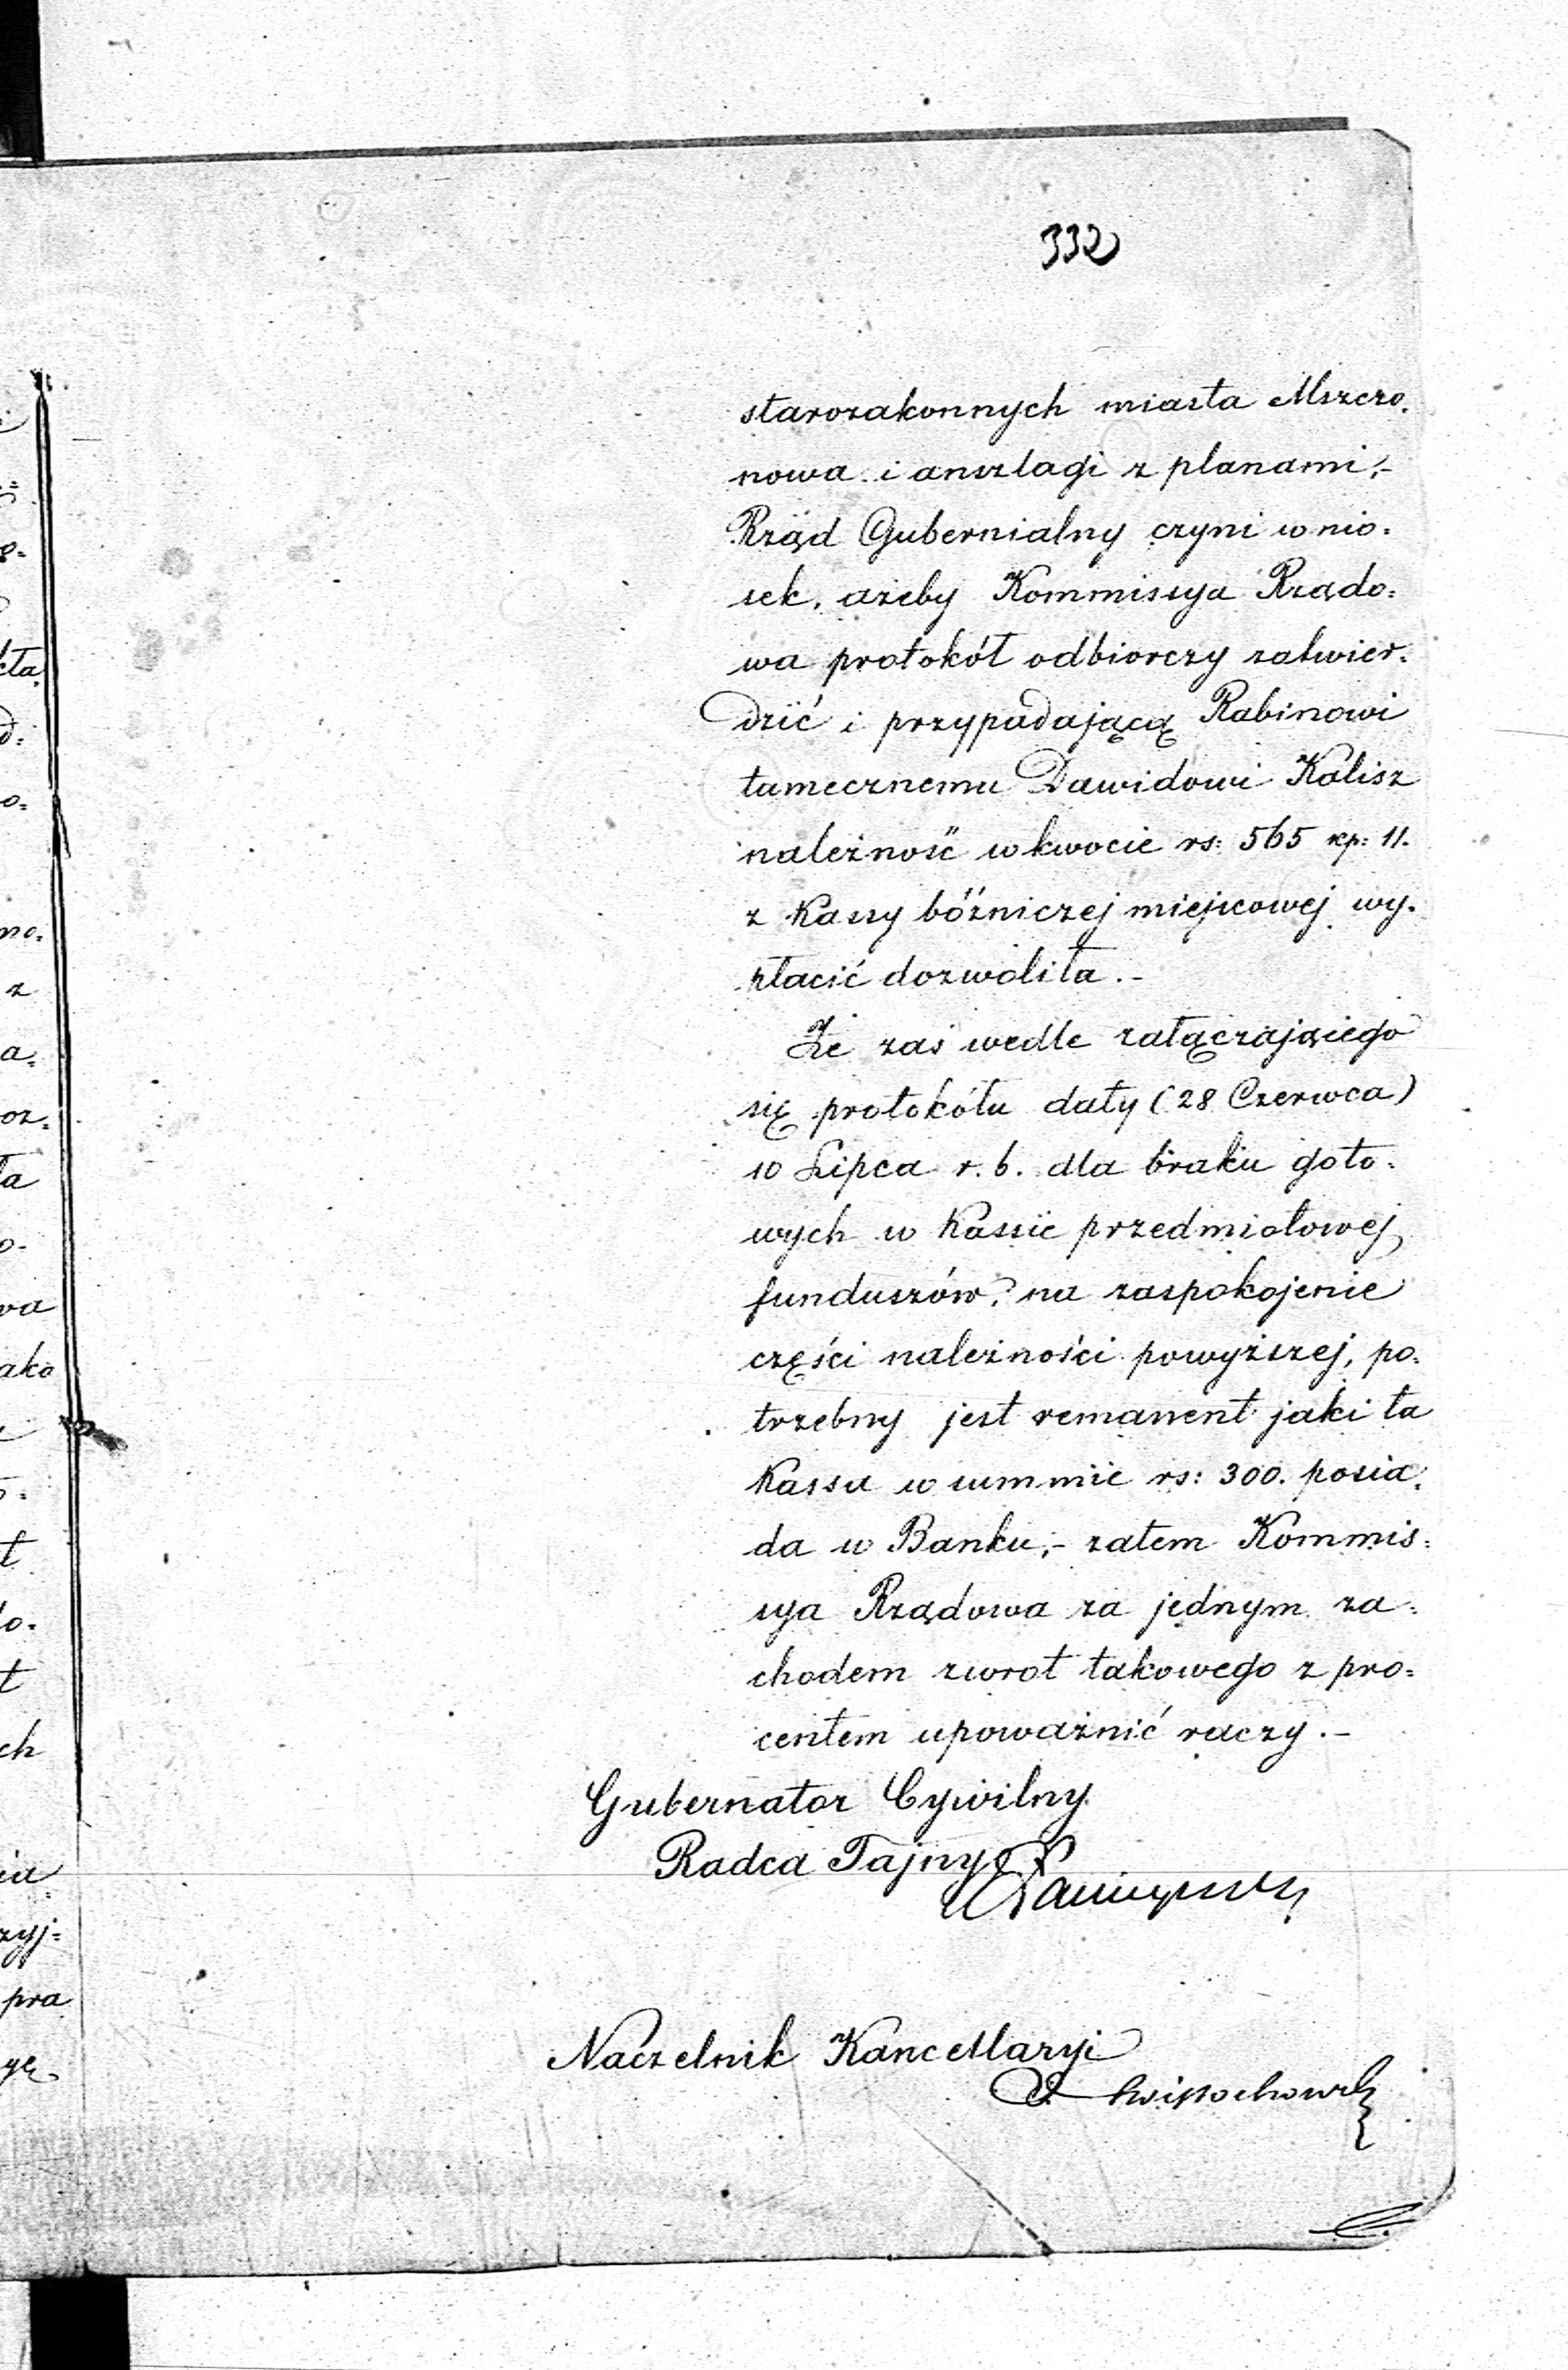 332
starozakonnych miasta Mszczo.
nowa i anszlagi z planami,-
Rząd Gubernialny czyni wnio.
sek, ażeby Kommissya Rządo:
wa protokół odbiorczy zatwier.
dzić i przypadającą Rabinowi
tamecznemu Dawidowi Kalisz
należność w kwocie rs: 565 kp: 11.
z Kassy bóżniczej miejscowej wy.
płacić dozwoliła.-
Że zaś wedle załączającego
się protokółu daty (28 Czerwca)
10 Lipca r. b. dla braku goto.
wych w Kassie przedmiotowej
funduszów, na zaspokojenie
części należności powyższej, po.
trzebny jest remanent jaki ta
Kassa w summie rs: 300. posia.
da w Banku,- zatem Kommis:
sya Rządowa za jednym za:
chodem zwrot takowego z pro:
centem upoważnić raczy.-
Gubernator Cywilny
Radca Tajny
Naczelnik Kancellaryi